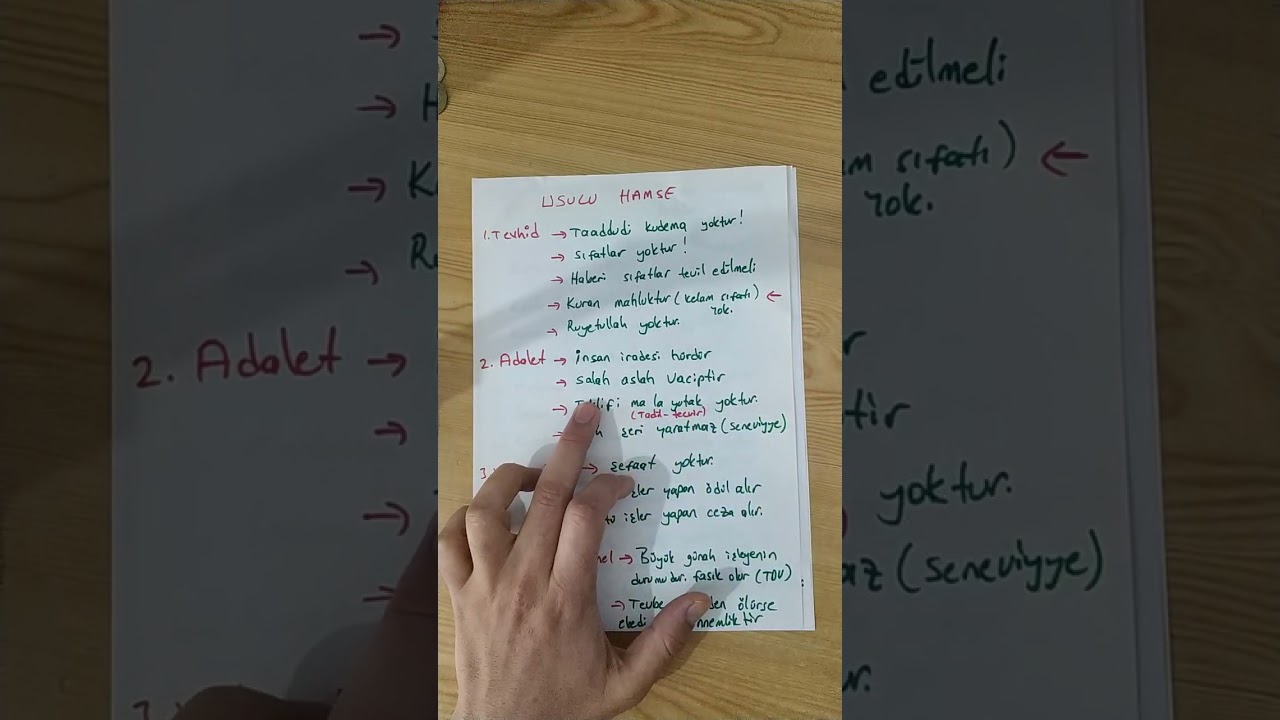 USULU HAMSE
1. Tevhid → Taaddudi kudema yoktur!
→ Sıfatlar yoktur!
→ Haberi sıfatlar tevil edilmeli
→ Kuran mahluktur (kelam sıfatı) ←
yok.
→ Ruyetullah yoktur.
2. Adalet → insan iradesi hürdür
→ Salah aslah vaciptir
→ ma la yutak yoktur.
(Tadil-tecvir)
şeri yaratmaz (seneviyye)
3.
→ Şefaat yoktur.
yapan ödül alır
işler yapan ceza alır.
→ Büyük günah işleyenin
durumudur. fasık olur (TDV)
→ Tevbe ölürse
ebedi